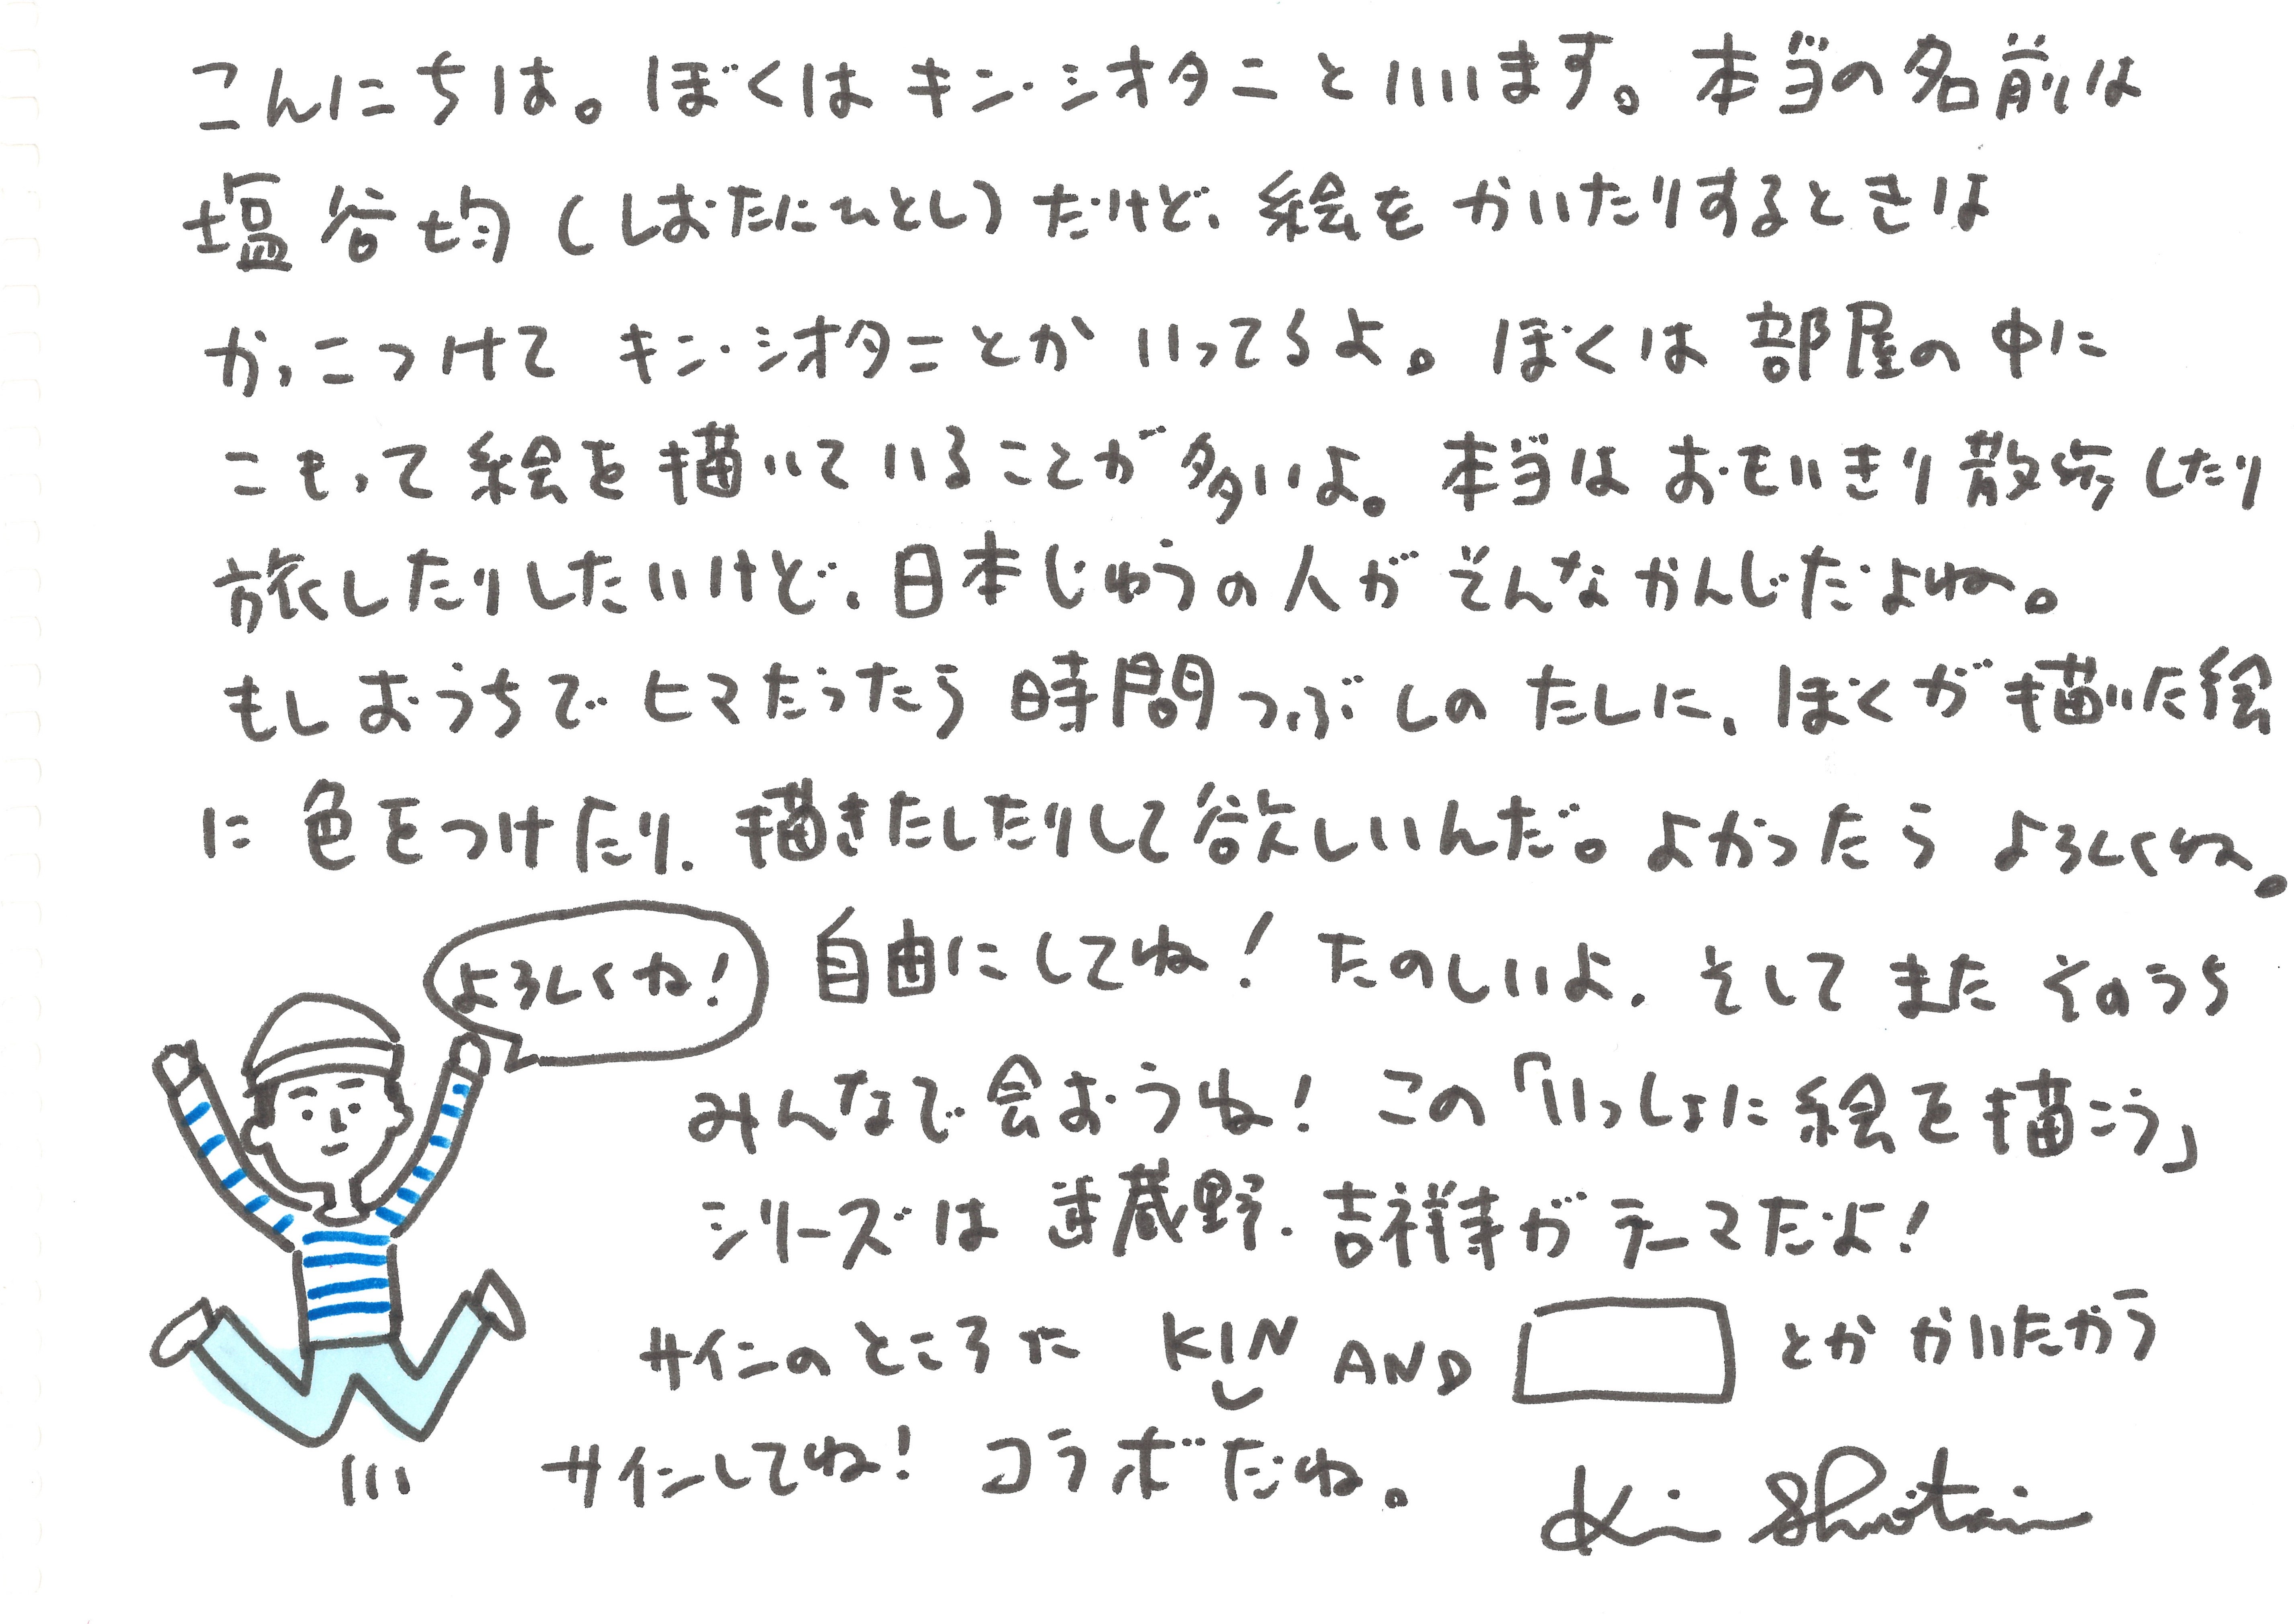 こんにちは。ぼくは キン・シオタニ といいます。本当の名前は
塩谷均(しおたにひとし)だけど、絵を かいたりするときは
かっこつけて キン・シオタニとか いってるよ。ぼくは 部屋の中に
こもって絵を描いていることが多いよ。本当は おもいきり散歩したり
旅したりしたいけど、日本じゅうの人が そんなかんじだよね。
もしおうちで ヒマだったら 時間つぶしの たしに、ぼくが描いた絵
に 色をつけたり、描きたしたりして欲しいんだ。よかったら よろしくね。
よろしくね!
自由にしてね! たのしいよ。そしてまた そのうち
みんなで会おうね! この「いっしょに絵を描こう」
シリーズは 武蔵野・吉祥寺が テーマだよ!
サインのところに KIN AND とか かいたがう
サインしてね! コラボだね。
Kin Shiotani